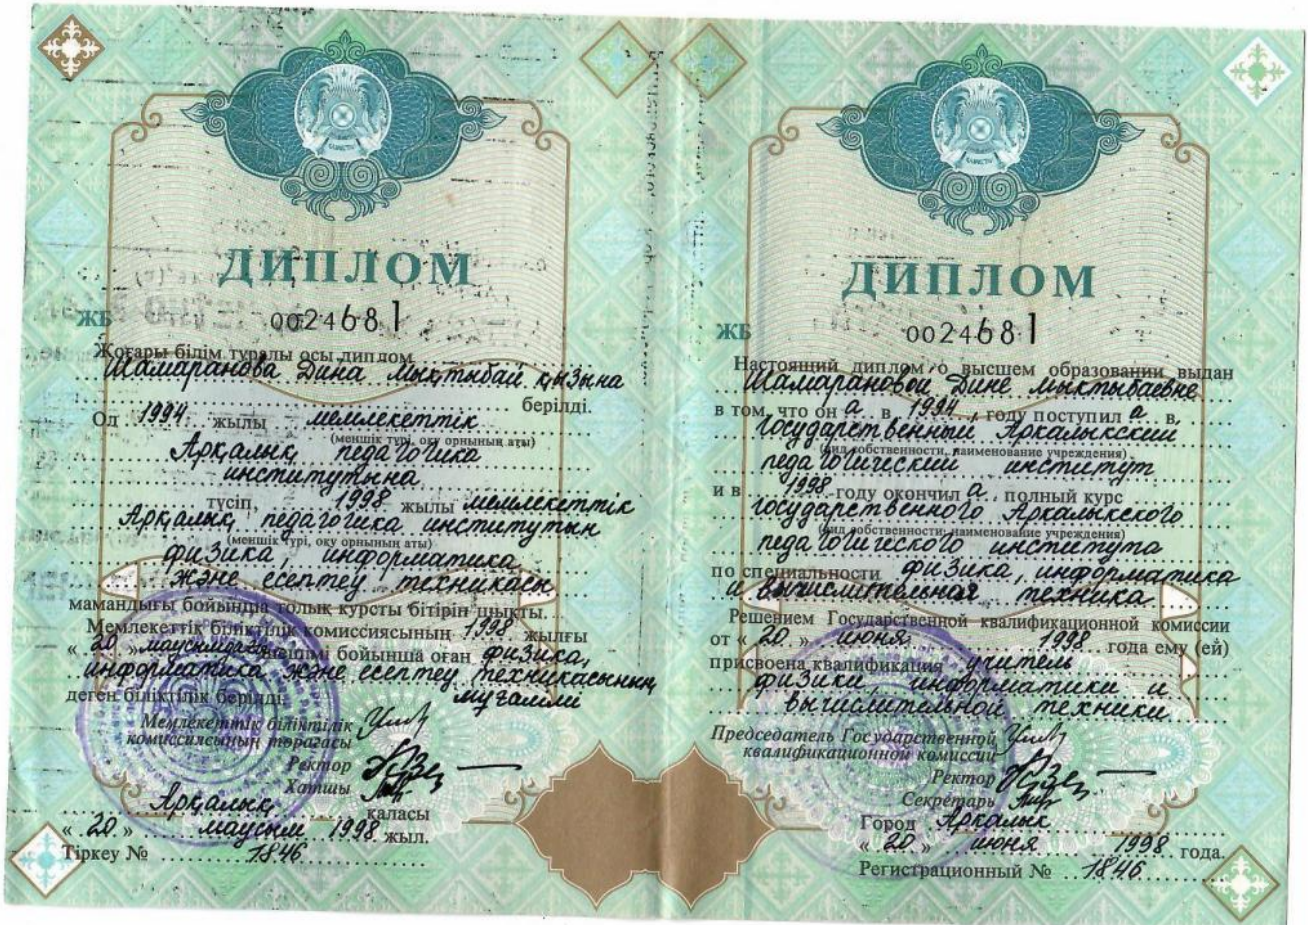 ДИПЛОМ
ЖБ 0024681
Жоғары білім туралы осы диплом
Шамаранова Дина Мықтыбай қызына
берілді.
Ол 1994 жылы мемлекеттік
(меншік түрі, оқу орнының аты)
Арқалық педагогика
институтына
түсіп, 1998 жылы мемлекеттік
Арқалық педагогика институтын
(меншік түрі, оқу орнының аты)
физика, информатика
және есептеу техникасы
мамандығы бойынша толық курсты бітіріп шықты.
Мемлекеттік біліктілік комиссиясының 1998 жылғы
« 20 » маусымдағы шешімі бойынша оған физика,
информатика және есептеу техникасының
деген біліктілік берілді. мұғалімі
Мемлекеттік біліктілік
комиссиясының төрағасы
Ректор
Хатшы
Арқалық қаласы
« 20 » маусым 1998 жыл.
Тіркеу № 1846
ДИПЛОМ
ЖБ 0024681
Настоящий диплом о высшем образовании выдан
Шамарановой Дине Мыктыбаевне
в том, что он а в 1994 году поступил а в
государственный Аркалыкский
(вид собственности, наименование учреждения)
педагогический институт
и в 1998 году окончил а полный курс
государственного Аркалыкского
(вид собственности, наименование учреждения)
педагогического института
по специальности физика, информатика
и вычислительная техника
Решением Государственной квалификационной комиссии
от « 20 » июня 1998 года ему (ей)
присвоена квалификация учитель
физики, информатики и
вычислительной техники
Председатель Государственной
квалификационной комиссии
Ректор
Секретарь
Город Аркалык
« 20 » июня 1998 года.
Регистрационный № 1846